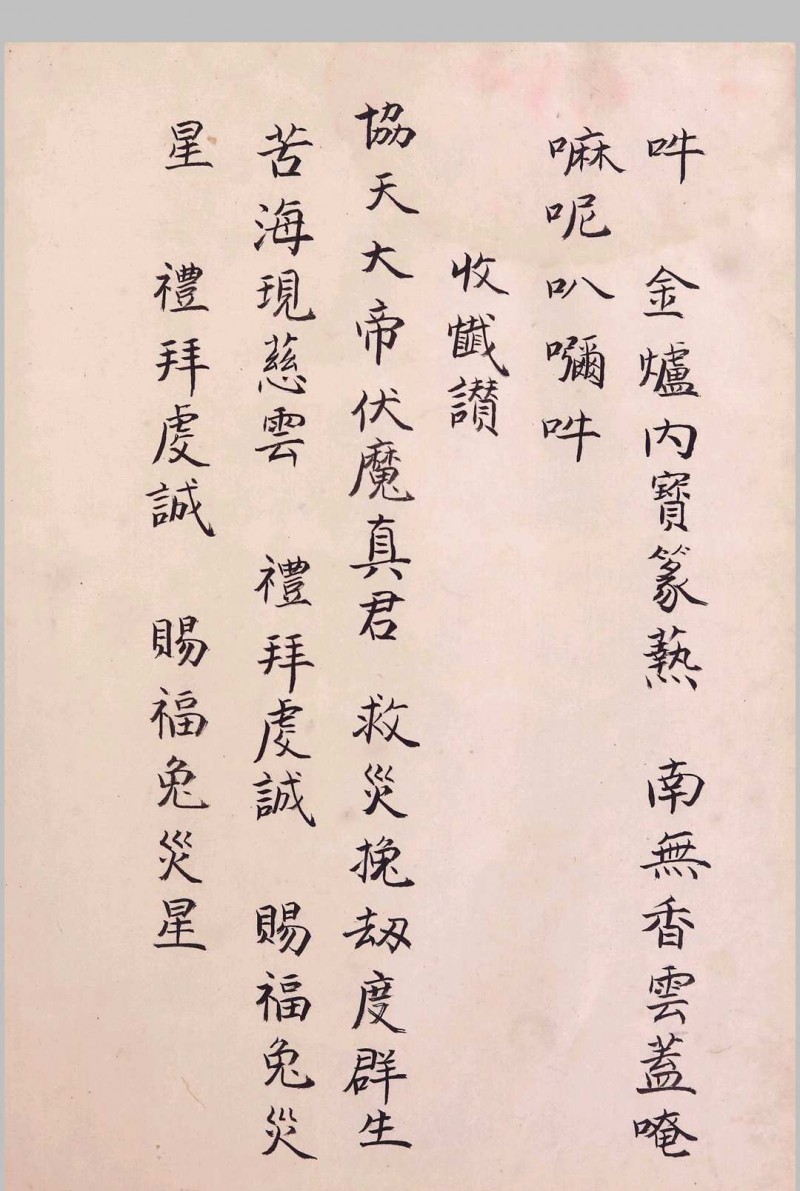 吽　金爐內寶篆爇　南無香雲蓋唵
嘛呢叭嚩吽
收懺讃
協天大帝伏魔真君　救災挽刼度群生
苦海現慈雲　禮拜虔誠　賜福免災
星　禮拜虔誠　賜福免災星